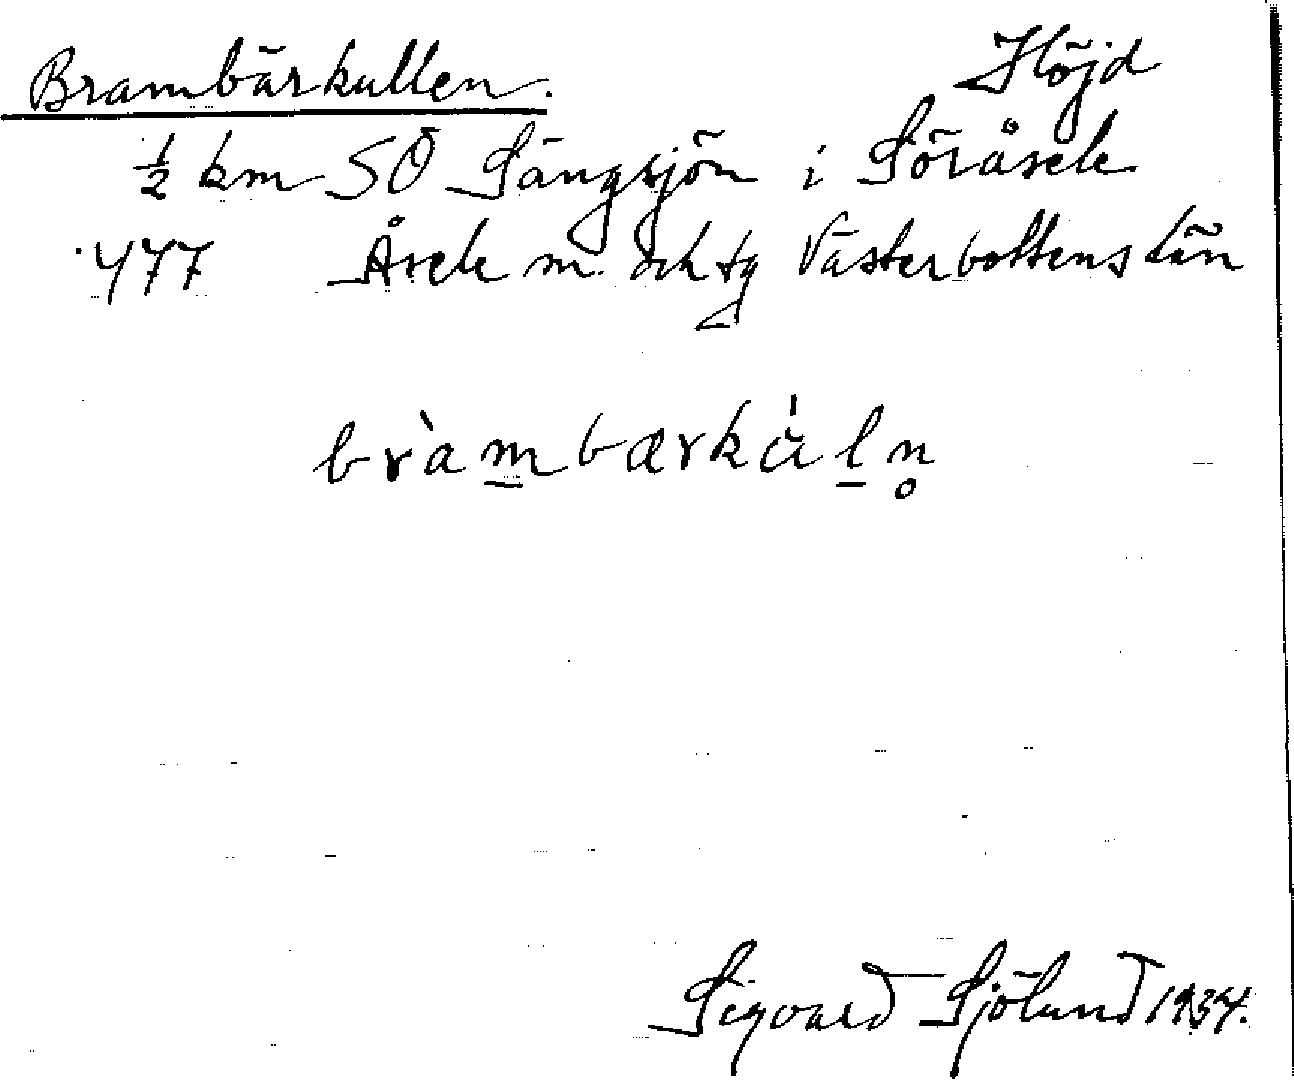 Brambärkullen. Höjd
½ km SÖ Sängsjön i Söråsele
477 Åsele sn. och tg Västerbottens län
bràmbærkúln̥
Sigvard Sjölund 1934.